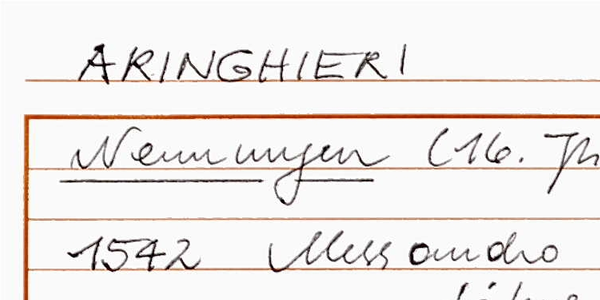 ARINGHIERI
Nennungen (16. Jh
1542 Alessandro